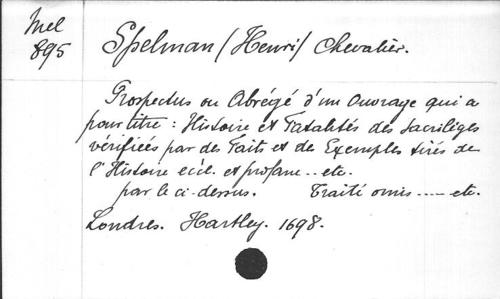 Mel
895
Spelman (Henri) Chevalier.
Prospectus ou Abrégé d'un Ouvrage qui a
pour titre : Histoire et Fatalités des Sacrilèges
vérifiées par des Faits et des Exemples tirés de
l'Histoire eccl. et profane .. etc.
par le ci-dessus. Traité omis ---- etc.
Londres. Hartley. 1698.